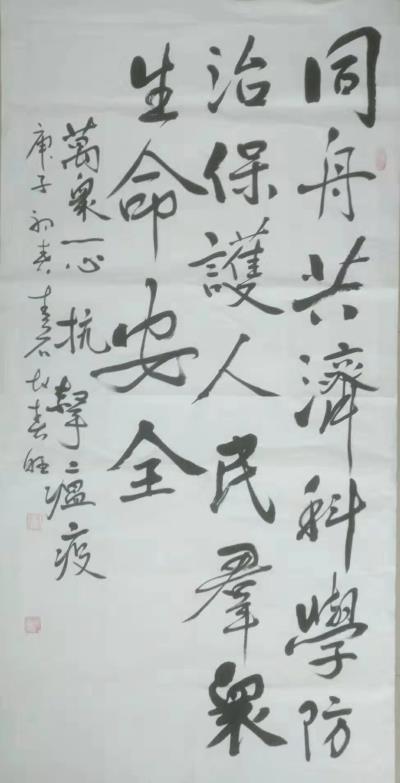 同舟共濟科學防
治保護人民羣衆
生命安全
萬衆一心抗擊瘟疫
庚子初春春旺